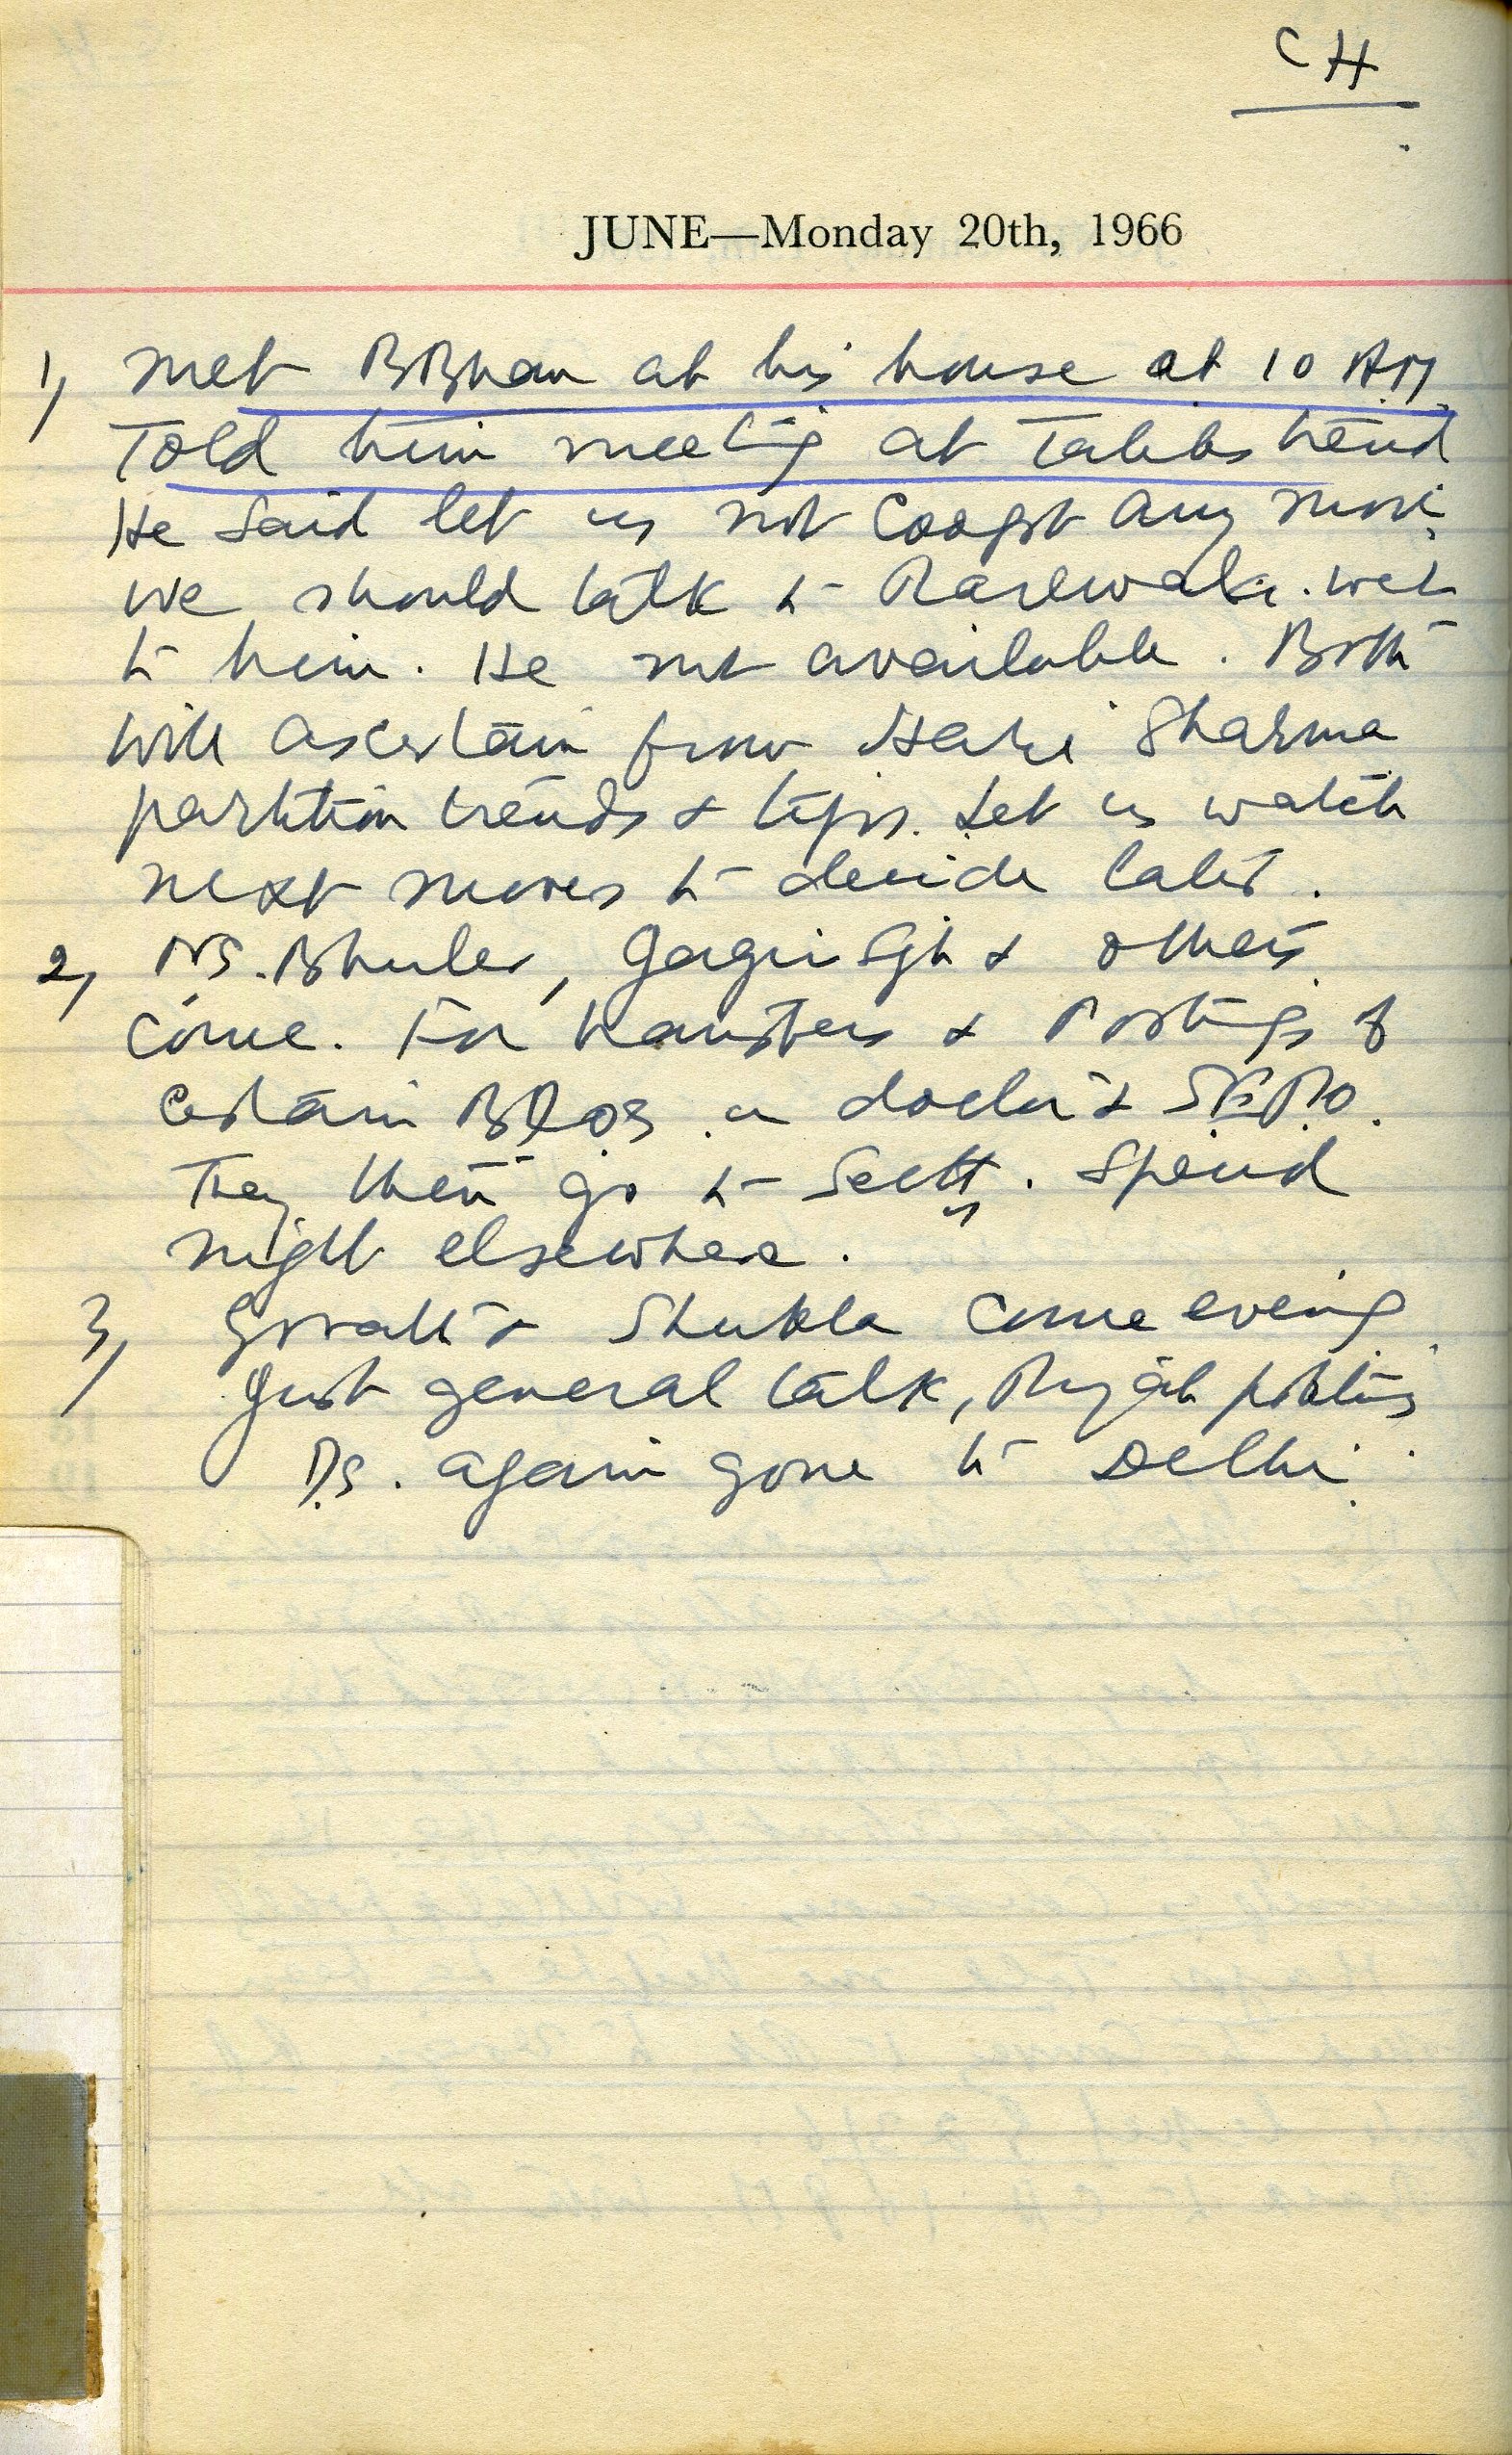 CH
JUNE—Monday 20th, 1966
1, Met BBhan at his house at 10 AM.
Told him meeting at Talibs trend
He said let us not coopt any more.
We should talk to Rarewala. Went
to him. He not available. Both
will ascertain from Hari Sharma
partition trends & tips. Let us watch
next moves to decide later.
2, NS. Bhuler, Gagin Sgh & others
come. For transfers & Postings of
certain BDOs. a doctor & SEPO.
They then go to Sectt. Spend
night elsewhere.
3, & Shukla come evening.
Just general talk, Punjab politics
D.S. again gone to Delhi.